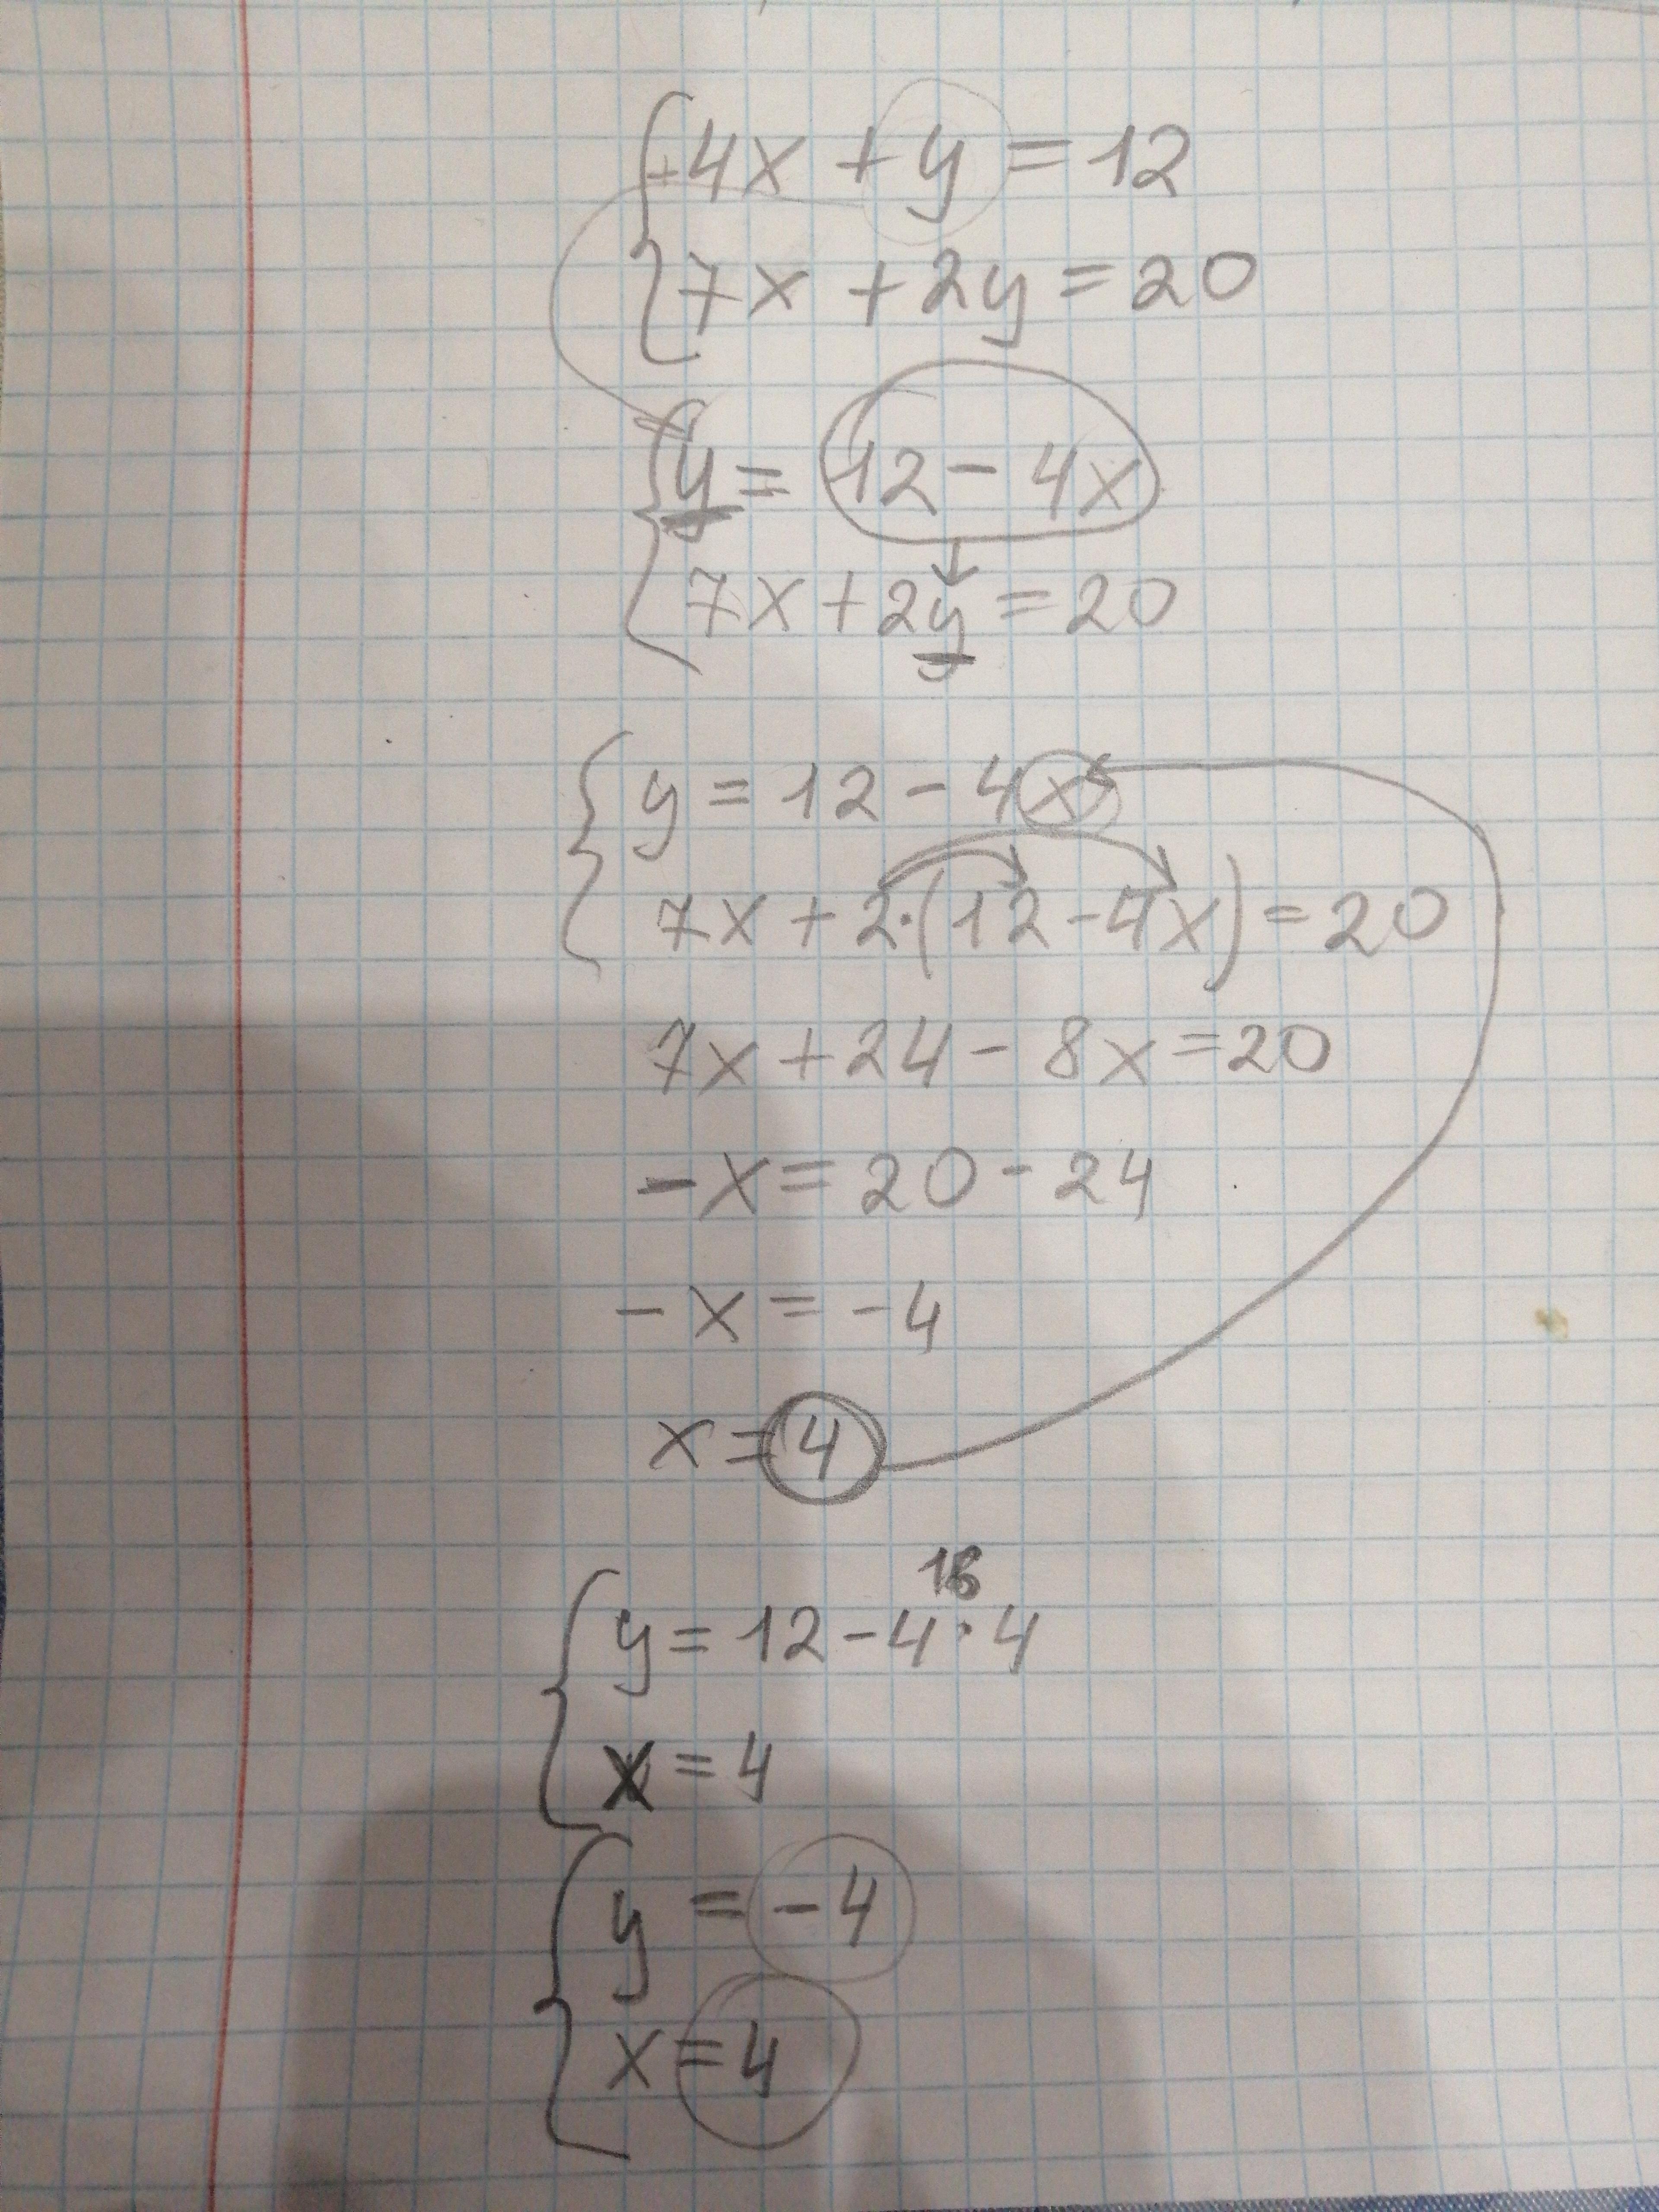 4x + y = 12
7x + 2y = 20
y = 12 - 4x
7x + 2y = 20
y = 12 - 4x
7x + 2·(12 - 4x) = 20
7x + 24 - 8x = 20
-x = 20 - 24
-x = -4
x = 4
16
y = 12 - 4·4
x = 4
y = -4
x = 4